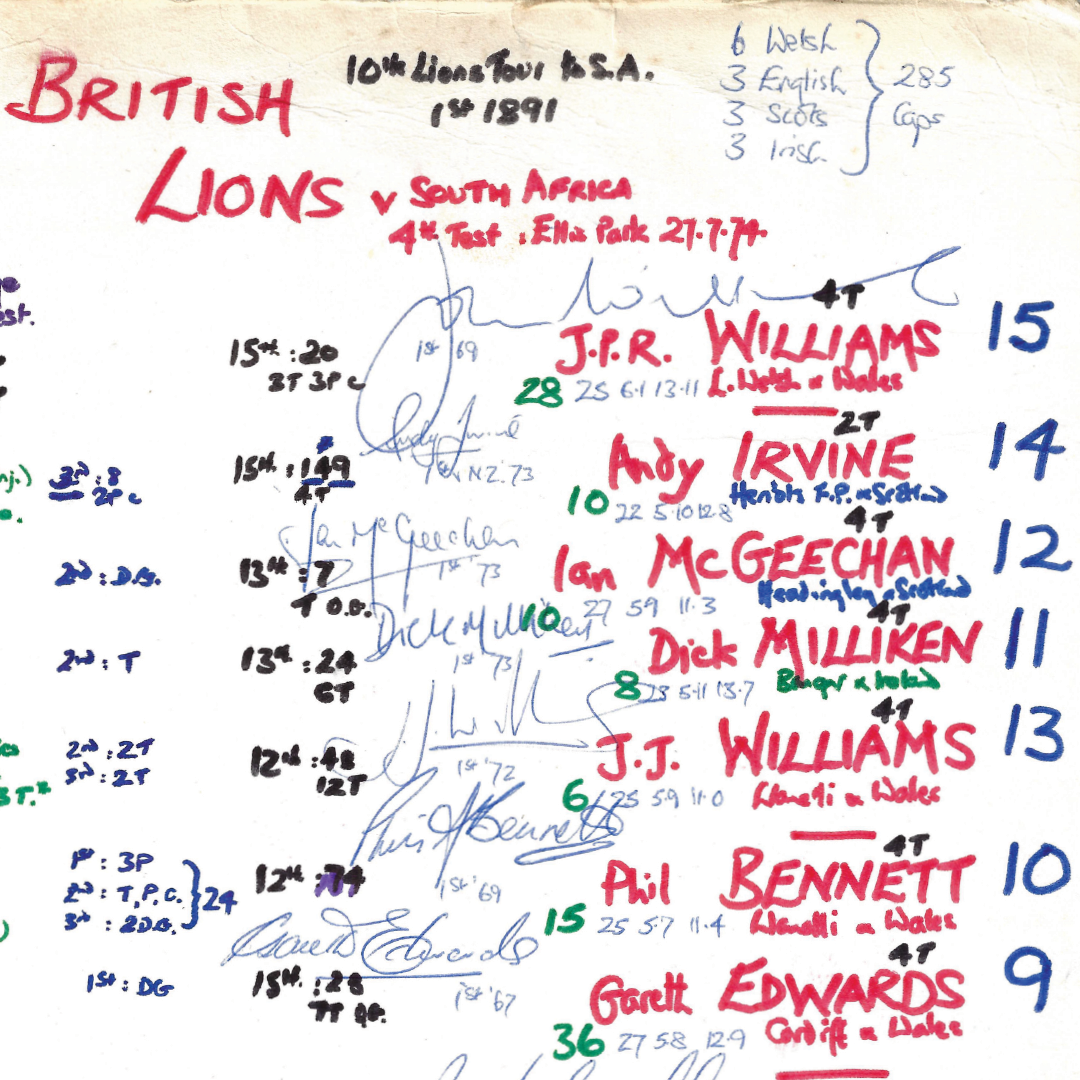 BRITISH
LIONS v SOUTH AFRICA
10th Lions Tour to S.A.
1st 1891
4th Test : Ellis Park 27.7.74.
6 Welsh
3 English
3 Scots
3 Irish
285
Caps
st.
4T
15th : 20
3T 3P c
1st '69
J.P.R. WILLIAMS 15
28 25 6.1 13.11 L. Welsh & Wales
Andy Irvine
2T
nj.) 3rd : 8
2P c
15th : 149
4T
1st v NZ. '73
Andy IRVINE 14
10 22 5.10 12.8 Heriots F.P. & Scotland
Ian McGeechan
4T
2nd : D.G.
13th : 7
T D.G.
1st '73
Ian McGEECHAN 12
10 27 5.9 11.3 Headingley & Scotland
Dick Milliken
4T
2nd : T
13th : 24
6T
1st '73
Dick MILLIKEN 11
8 23 5.11 13.7 Bangor & Ireland
4T
2nd : 2T
3rd : 2T
3T.*
12th : 48
12T
1st '72
J.J. WILLIAMS 13
6 25 5.9 11.0 Llanelli & Wales
Phil Bennett
4T
1st : 3P
2nd : T, P, C.
3rd : 2D.G.
24
12th : 74
1st '69
Phil BENNETT 10
15 25 5.7 11.4 Llanelli & Wales
Gareth Edwards
4T
1st : DG
15th : 28
7T
1st '67
Gareth EDWARDS 9
36 27 5.8 12.9 Cardiff & Wales